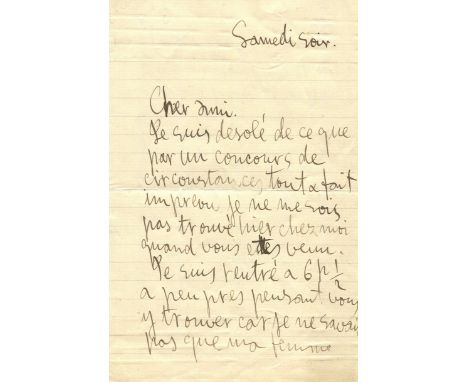 Samedi soir.
Cher ami.
Je suis desolé de ce que
par un concours de
circonstances tout a fait
imprevu je ne me sois
pas trouvé hier chez moi
quand vous etes venu.
Je suis rentré a 6h 1/2
a peu pres pensant vous
y trouver car je ne savais
pas que ma femme